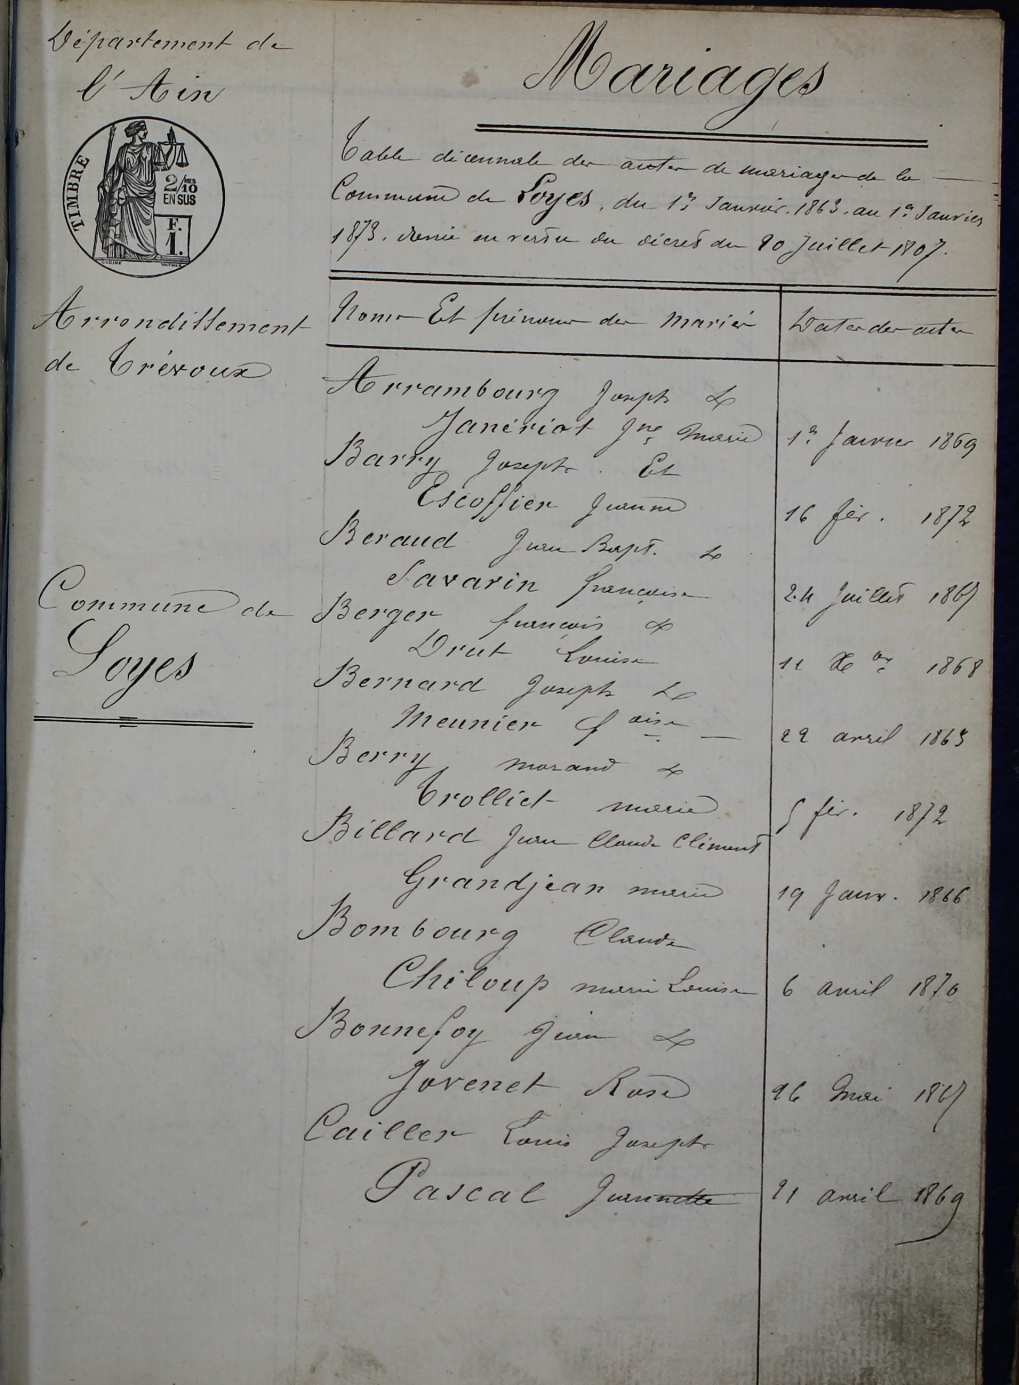 Département de
l'Ain
TIMBRE
2/10
EN SUS
F.
1.
Arrondissement
de Trévoux
Commune de
Loyes
Mariages
Table décennale des actes de mariages de la
Commune de Loyes, du 1er Janvier 1863. au 1er Janvier
1873. en vertu du décret du 20 Juillet 1807.
Noms Et prénoms des mariés
Dates des actes
Arrambourg Joseph &
Janériat Jne Marie 1er Janvier 1869
Barry Joseph. Et
Escoffier Jeanne 16 fév. 1872
Beraud Jean Bapt. &
Savarin françoise 24 Juillet 1867
Berger françois &
Drut Louise 11 Xbre 1868
Bernard Joseph &
Meunier foise 22 avril 1863
Berry morand &
Trolliet marie 5 fév. 1872
Billard Jean Claude Clément
Grandjean marie 19 Janv. 1866
Bombourg Claude
Chiloup marie Louise 6 avril 1870
Bonnefoy Jean &
Jovenet Rose 26 Mai 1867
Cailler Louis Joseph
Pascal Jeannette 21 avril 1869